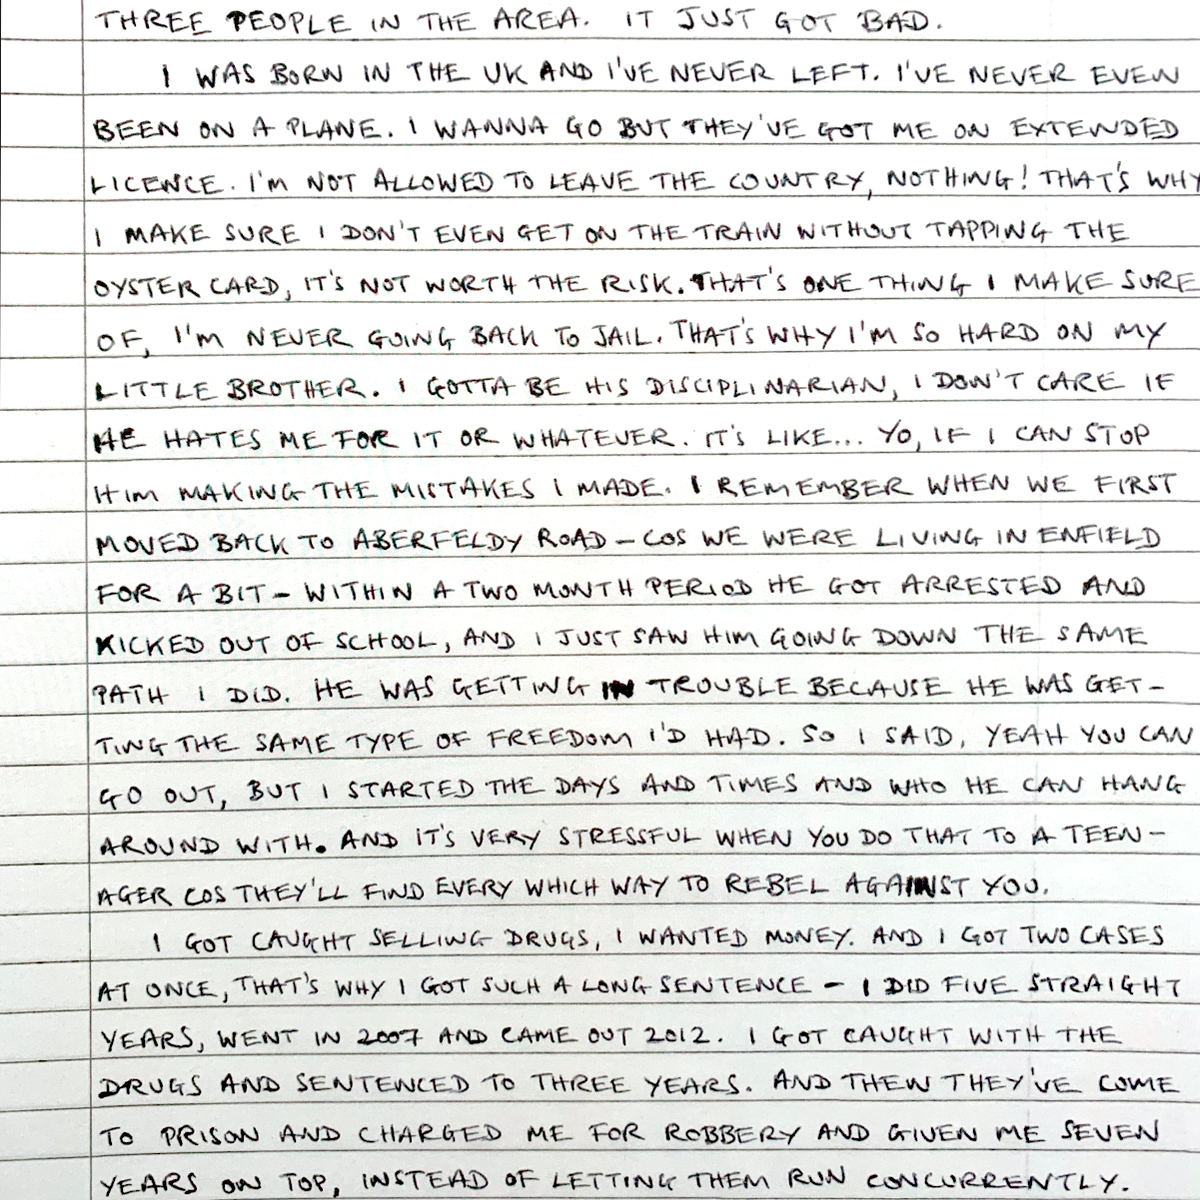 THREE PEOPLE IN THE AREA. IT JUST GOT BAD.
I WAS BORN IN THE UK AND I'VE NEVER LEFT. I'VE NEVER EVEN
BEEN ON A PLANE. I WANNA GO BUT THEY'VE GOT ME ON EXTENDED
LICENCE. I'M NOT ALLOWED TO LEAVE THE COUNTRY, NOTHING! THAT'S WHY
I MAKE SURE I DON'T EVEN GET ON THE TRAIN WITHOUT TAPPING THE
OYSTER CARD, IT'S NOT WORTH THE RISK. THAT'S ONE THING I MAKE SURE
OF, I'M NEVER GOING BACK TO JAIL. THAT'S WHY I'M SO HARD ON MY
LITTLE BROTHER. I GOTTA BE HIS DISCIPLINARIAN, I DON'T CARE IF
HE HATES ME FOR IT OR WHATEVER. IT'S LIKE... YO, IF I CAN STOP
HIM MAKING THE MISTAKES I MADE. I REMEMBER WHEN WE FIRST
MOVED BACK TO ABERFELDY ROAD – COS WE WERE LIVING IN ENFIELD
FOR A BIT – WITHIN A TWO MONTH PERIOD HE GOT ARRESTED AND
KICKED OUT OF SCHOOL, AND I JUST SAW HIM GOING DOWN THE SAME
PATH I DID. HE WAS GETTING IN TROUBLE BECAUSE HE WAS GET-
TING THE SAME TYPE OF FREEDOM I'D HAD. SO I SAID, YEAH YOU CAN
GO OUT, BUT I STARTED THE DAYS AND TIMES AND WHO HE CAN HANG
AROUND WITH. AND IT'S VERY STRESSFUL WHEN YOU DO THAT TO A TEEN-
AGER COS THEY'LL FIND EVERY WHICH WAY TO REBEL AGAINST YOU.
I GOT CAUGHT SELLING DRUGS, I WANTED MONEY. AND I GOT TWO CASES
AT ONCE, THAT'S WHY I GOT SUCH A LONG SENTENCE – I DID FIVE STRAIGHT
YEARS, WENT IN 2007 AND CAME OUT 2012. I GOT CAUGHT WITH THE
DRUGS AND SENTENCED TO THREE YEARS. AND THEN THEY'VE COME
TO PRISON AND CHARGED ME FOR ROBBERY AND GIVEN ME SEVEN
YEARS ON TOP, INSTEAD OF LETTING THEM RUN CONCURRENTLY.